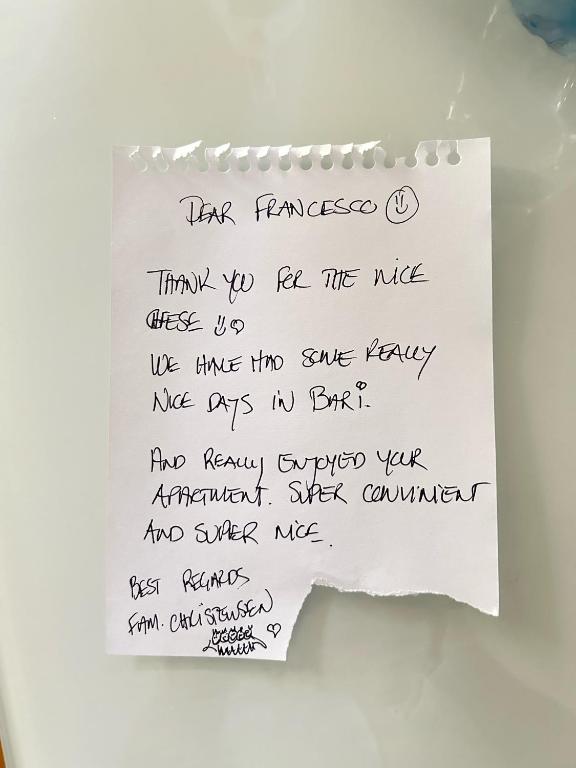 DEAR FRANCESCO
THANK YOU FOR THE NICE
CHESE
WE HAVE HAD SOME REALLY
NICE DAYS IN BARI.
AND REALLY ENJOYED YOUR
APARTMENT. SUPER CONVINIENT
AND SUPER NICE.
BEST REGARDS
FAM. CHRISTENSEN